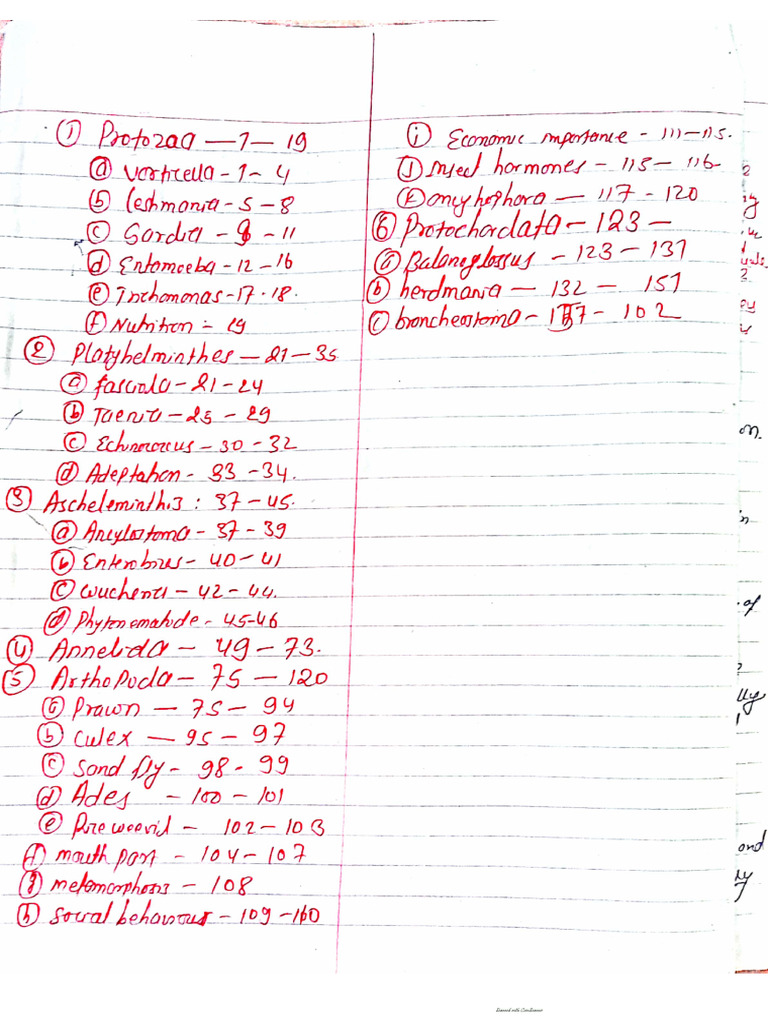 ① Protozoa — 1 — 19
ⓐ Vorticella - 1 - 4
ⓑ Leshmania - 5 - 8
ⓒ Gardia - 9 - 11
ⓓ Entamoeba - 12 - 16
ⓔ Trichomonas - 17 - 18.
ⓕ Nutrition - 19
② Platyhelminthes — 21 — 35
ⓐ fasciola - 21 - 24
ⓑ Taenia - 25 - 29
ⓒ Echinococcus - 30 - 32
ⓓ Adeptation - 33 - 34.
③ Aschelminthis : 37 - 45.
ⓐ Ancylostoma - 37 - 39
ⓑ Enterobies - 40 - 41
ⓒ Wucheria - 42 - 44.
ⓓ Phytonematode - 45-46
④ Annelida — 49 — 73.
⑤ Arthopoda — 75 — 120
ⓐ Prawn — 75 - 94
ⓑ Culex — 95 - 97
ⓒ Sand fly - 98 - 99
ⓓ Ades - 100 - 101
ⓔ 102 - 103
ⓕ mouth part - 104 - 107
ⓖ metamorphosis - 108
ⓗ Social behaviour - 109 -
ⓘ Economic importance - 111 - 115.
ⓙ Insect hormones - 115 - 116
ⓚ onychophora — 117 - 120
⑥ Protochordata — 123 —
ⓐ Balanoglossus - 123 - 131
ⓑ herdmania — 132 — 151
ⓒ - 102
Scanned with CamScanner